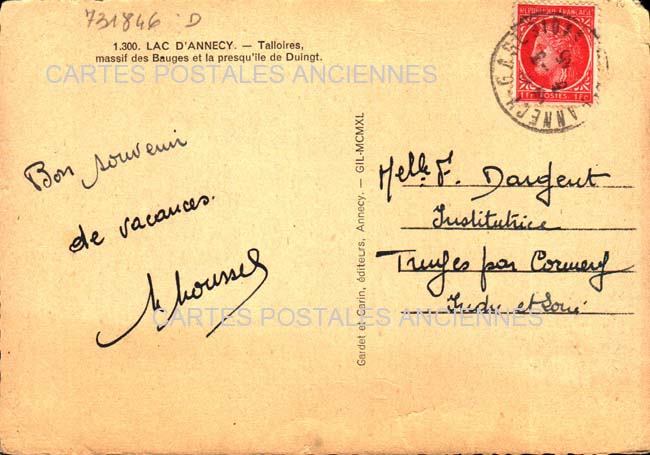 731846 D
1.300. LAC D'ANNECY. — Talloires,
massif des Bauges et la presqu'ile de Duingt.
CARTES POSTALES ANCIENNES
Bon souvenir
de vacances.
Gardet et Garin, éditeurs, Annecy. — GIL-MCMXL
REPUBLIQUE FRANÇAISE
1 Fr POSTES 1 Fr
ANNECY-GARE
Melle F. Dargent
Institutrice
Truyes par Cormery
Indre et Loire
CARTES POSTALES ANCIENNES